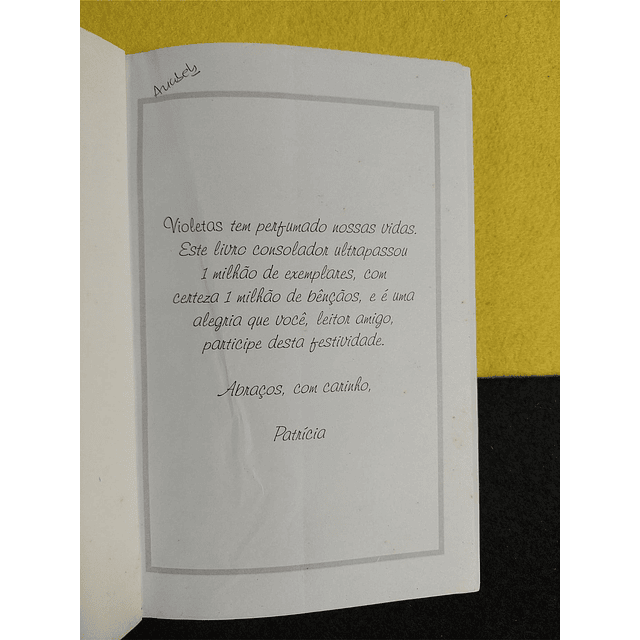 Violetas tem perfumado nossas vidas.
Este livro consolador ultrapassou
1 milhão de exemplares, com
certeza 1 milhão de bênçãos, e é uma
alegria que você, leitor amigo,
participe desta festividade.
Abraços, com carinho,
Patrícia